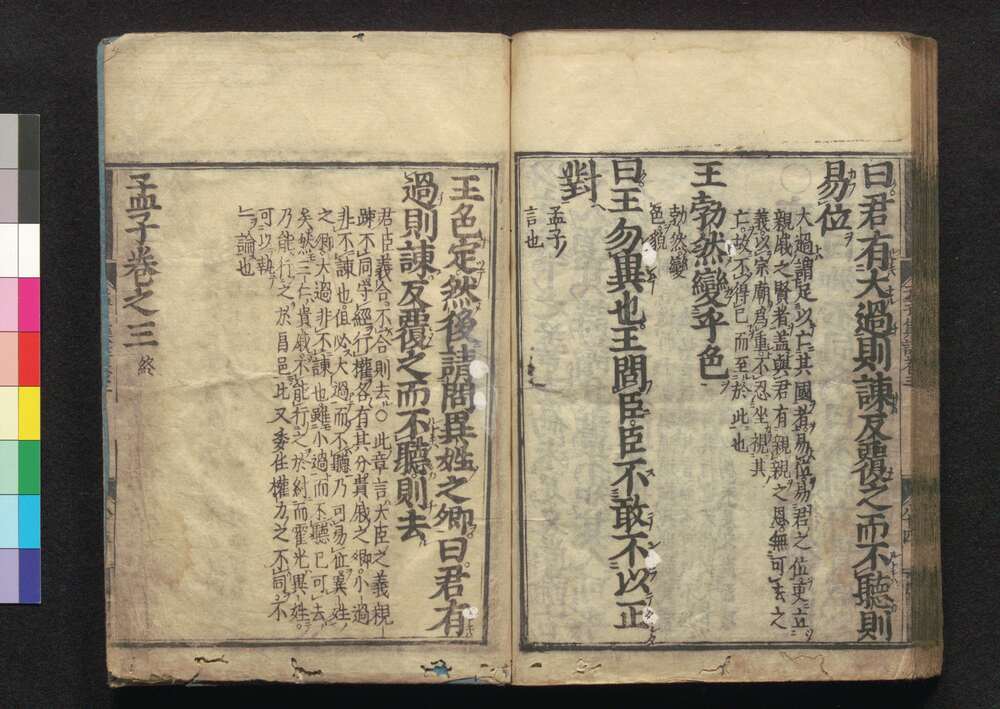 曰君有大過則諫反覆之而不聽則
易位
大過謂足以亡其國者易位易君之位更立
親戚之賢者蓋與君有親親之恩無可去之
義以宗廟爲重不忍坐視其
亡故不得已而至於此也
王勃然變乎色
勃然變
色貌
曰王勿異也王問臣臣不敢不以正
對
孟子
言也
王色定然後請問異姓之卿曰君有
過則諫反覆之而不聽則去
君臣義合不合則去○此章言大臣之義親
踈不同守經行權各有其分貴戚之卿小過
非不諫也但必大過而不聽乃可易位異姓
之卿大過非不諫也雖小過而不聽已可去
矣然三仁貴戚不能行之於紂而霍光異姓
乃能行之於昌邑此又委任權力之不同不
可以執
一論也
孟子卷之三 終